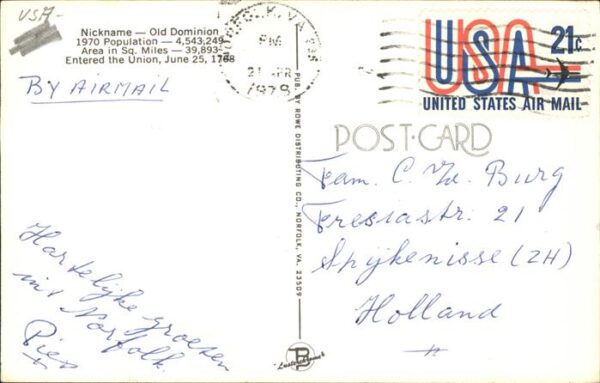 USA
Nickname — Old Dominion
1970 Population — 4,543,249
Area in Sq. Miles — 39,893
Entered the Union, June 25, 1788
BY AIRMAIL
NORFOLK, VA
PM
21 APR
1979
USA 21c
UNITED STATES AIR MAIL
POST-CARD
PUB. BY ROWE DISTRIBUTING CO., NORFOLK, VA. 23509
Fam. C. Burg
Fresiastr. 21
Spijkenisse (ZH)
Holland
Hartelijke groeten
uit Norfolk.
Pier
Lusterchrome